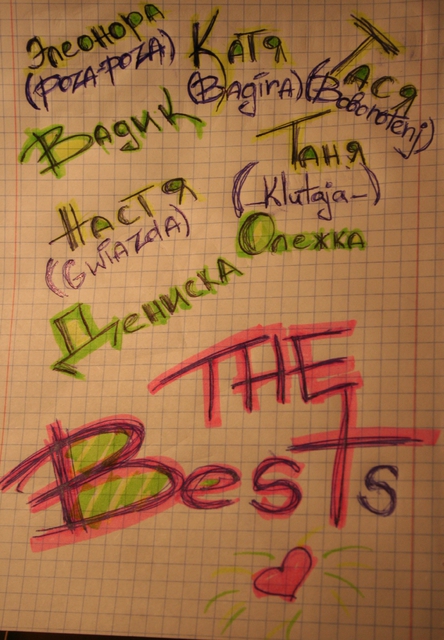 Элеонора
(POZA-POZA)
Катя
(Bagira)
Тася
(Boborotenj)
Вадик
Таня
(_Klutaja_)
Настя
(GWIAZDA)
Олежка
Дениска
THE
BesTs